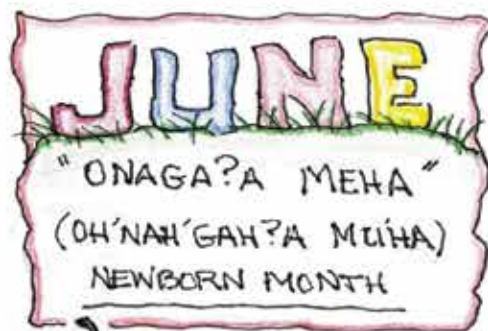 JUNE
"ONAGA?A MEHA"
(OH'NAH'GAH?A MUIHA)
NEWBORN MONTH